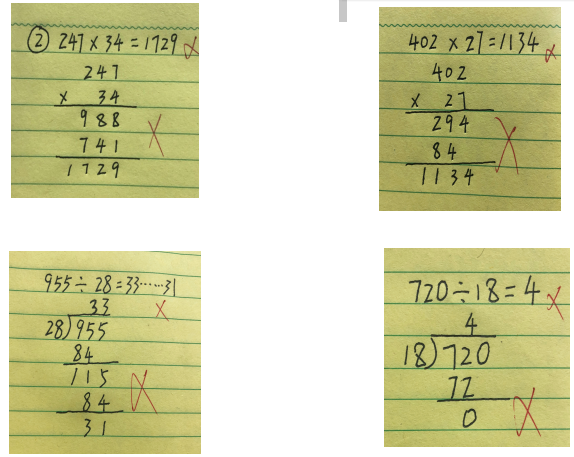 ② 247 × 34 = 1729
247
× 34
988
741
1729
402 × 27 = 1134
402
× 27
294
84
1134
955 ÷ 28 = 33……31
33
28)955
84
115
84
31
720 ÷ 18 = 4
4
18)720
72
0